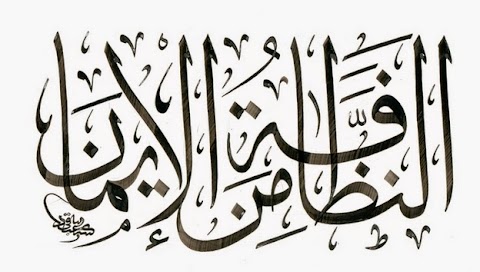 النظافة من الإيمان